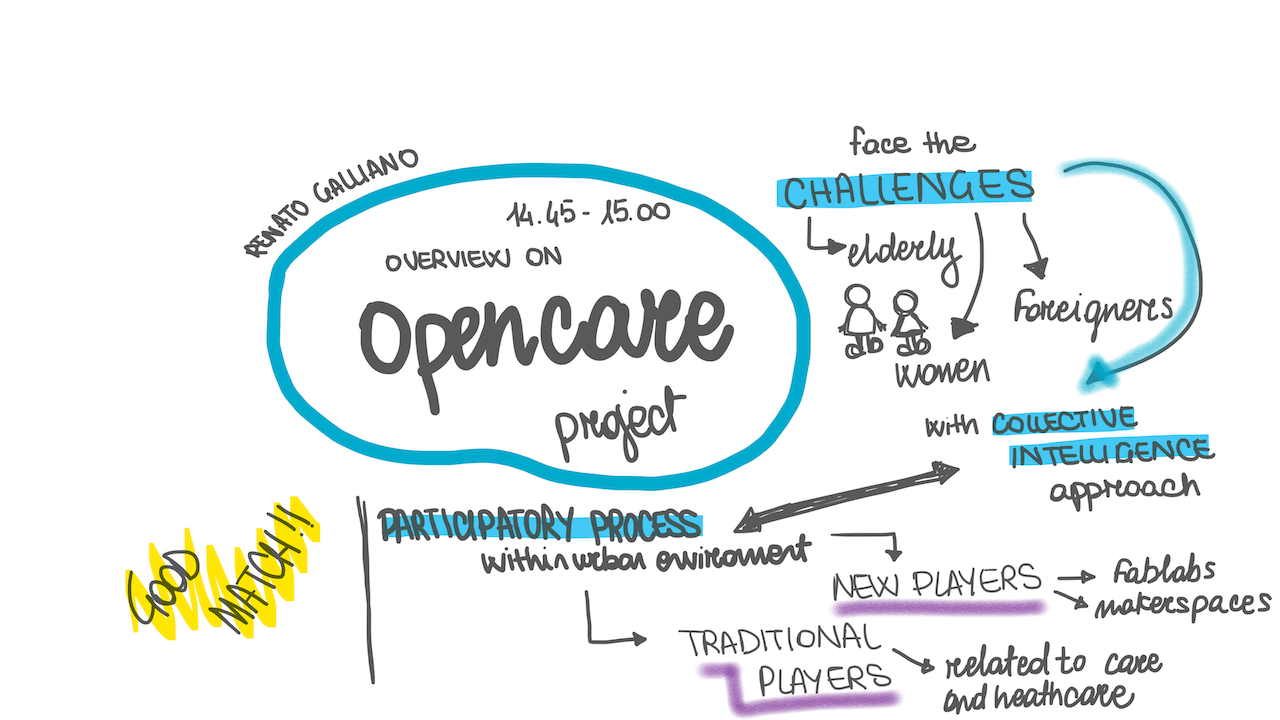 RENATO GALLIANO
14.45 - 15.00
OVERVIEW ON
Opencare
project
face the
CHALLENGES
elderly
foreigners
women
with COLLECTIVE
INTELLIGENCE
approach
GOOD
MATCH!!
PARTICIPATORY PROCESS
within urban enviroment
NEW PLAYERS
fablabs
makerspaces
TRADITIONAL
PLAYERS
related to care
and heathcare